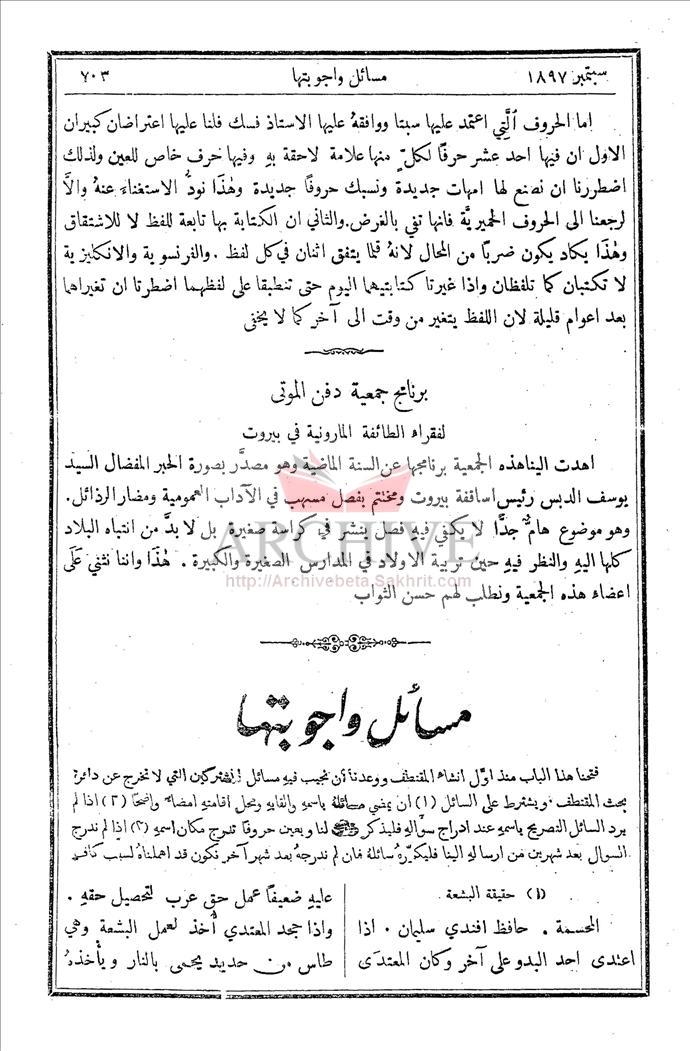 سبتمبر ١٨٩٧
مسائل واجوبتها
٧٠٣
اما الحروف الَّتِي اعتمد عليها سبتا ووافقهُ عليها الاستاذ فسك فلنا عليها اعتراضان كبيران
الاول ان فيها احد عشر حرفًا لكلٍّ منها علامة لاحقة بهِ وفيها حرف خاص للعين ولذلك
اضطررنا ان نصنع لها امهات جديدة ونسبك حروفًا جديدة وهٰذا نودُّ الاستغناءَ عنهُ والَّا
لرجعنا الى الحروف الحميريَّة فانها تفي بالغرض. والثاني ان الكتابة بها تابعة للفظ لا للاشتقاق
وهٰذا يكاد يكون ضربًا من المحال لانهُ قلما يتفق اثنان في كل لفظ . والفرنسوية والانكليزية
لا تكتبان كما تلفظان واذا غيرتا كتابتيهما اليوم حتى تنطبقا على لفظهما اضطرتا ان تغيراهما
بعد اعوام قليلة لان اللفظ يتغير من وقت الى آخر كما لا يخفى
برنامج جمعية دفن الموتى
لفقراء الطائفة المارونية في بيروت
اهدت الينا هذه الجمعية برنامجها عن السنة الماضية وهو مصدَّر بصورة الحبر المفضال السيد
يوسف الدبس رئيس اساقفة بيروت ومختتم بفصل مسهب في الآداب العمومية ومضار الرذائل.
وهو موضوع هامٌّ جدًّا لا يكفي فيهِ فصل ينشر في كراسة صغيرة بل لا بدَّ من انتباه البلاد
كلها اليهِ والنظر فيهِ حين تربية الاولاد في المدارس الصغيرة والكبيرة . هٰذا واننا نثني عَلَى
اعضاء هذه الجمعية ونطلب لهم حسن الثواب
ARCHIVE
http://Archivebeta.Sakhrit.com
مسائل واجوبتها
فتحنا هذا الباب منذ اول انشاء المقتطف ووعدنا أن نجيب فيهِ مسائل المشتركين التي لا تخرج عن دائرة
بحث المقتطف ويشترط على السائل (١) أن يمضي مسائلهُ باسمهِ والقابهِ ومحل اقامتهِ امضاءً واضحًا (٢) اذا لم
يرد السائل التصريح باسمهِ عند ادراج سؤالهِ فليذكر ذلك لنا ويعين حروفًا تدرج مكان اسمهِ (٣) اذا لم ندرج
السؤال بعد شهرين من ارسالهِ الينا فليكرّرهُ سائلهُ فان لم ندرجهُ بعد شهر آخر نكون قد اهملناهُ لسبب كافٍ
(١) حقيقة البشعة
المحسمة . حافظ افندي سليمان . اذا
اعتدى احد البدو على آخر وكان المعتدى
عليهِ ضعيفًا عمل حق عرب لتحصيل حقهِ .
واذا جحد المعتدي أُخذ لعمل البشعة وهي
طاس من حديد يحمى بالنار ويأخذهُ